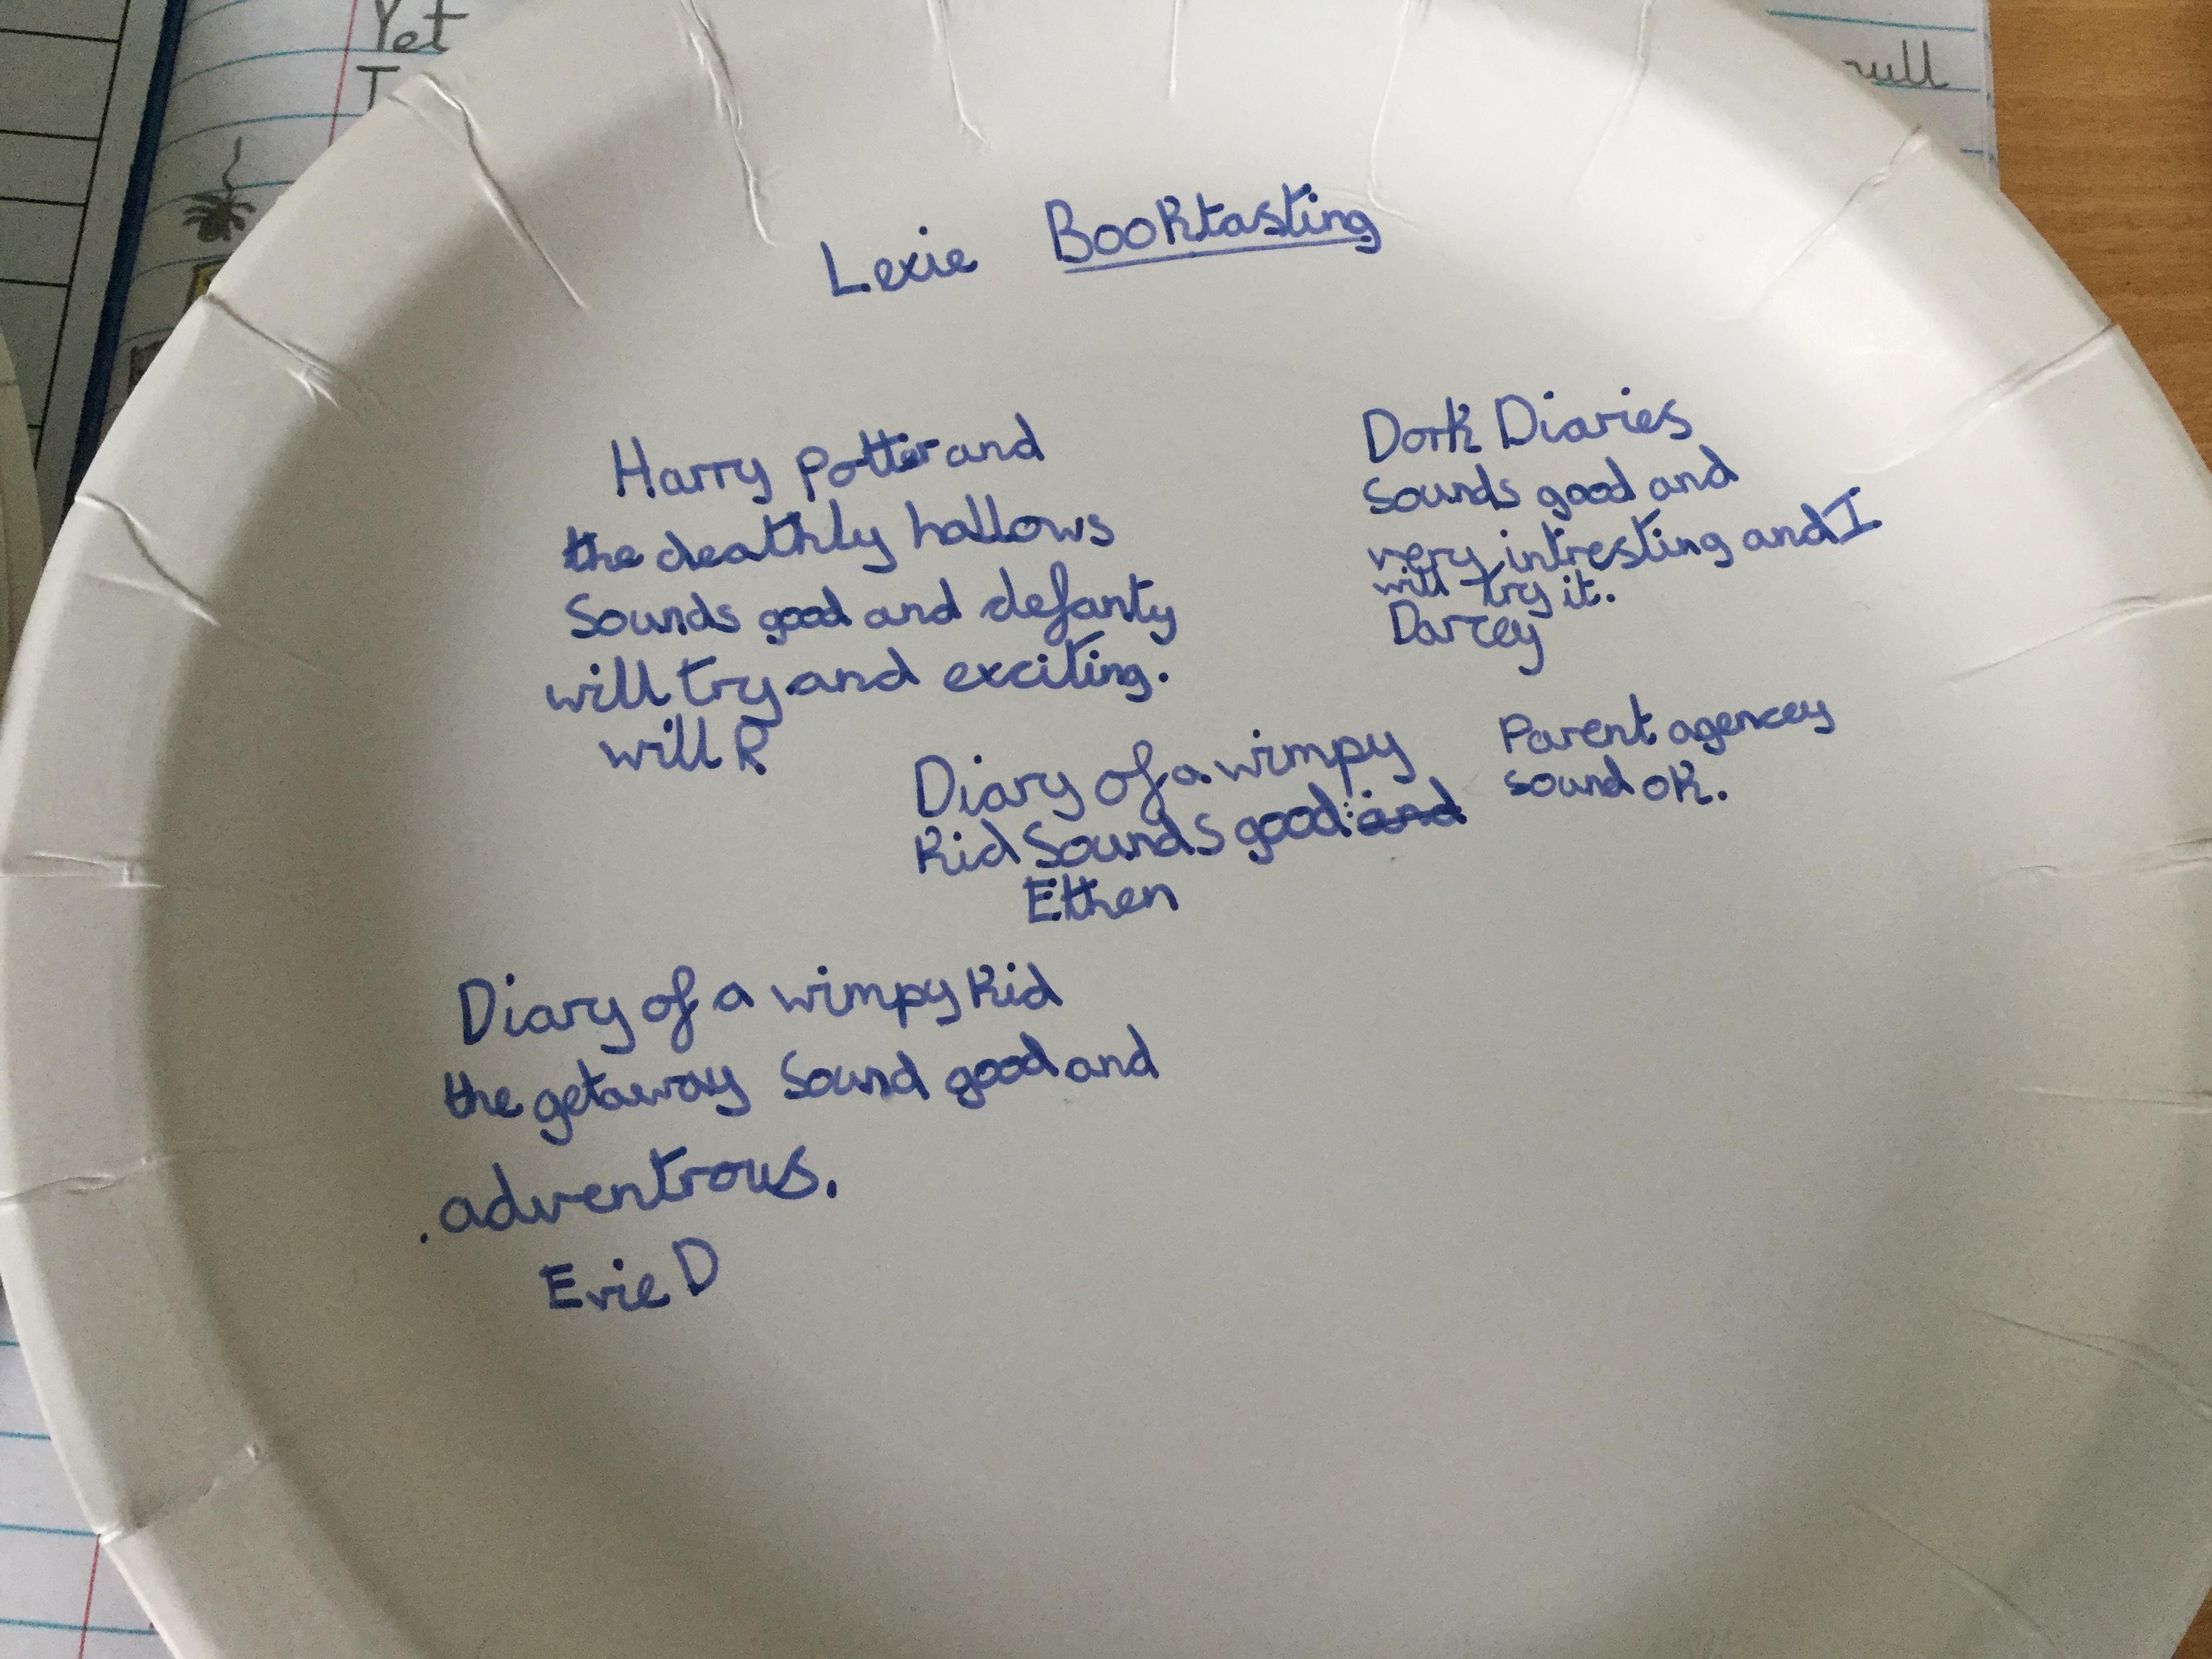 Yet
Lexie Booktasting
Harry potter and
the deathly hallows
Sounds good and defanty
will try and exciting.
will R
Dork Diaries
Sounds good and
very intresting and I
will try it.
Darcey
Diary of a wimpy
Kid Sounds good and
Ethen
Parent agencey
sound ok.
Diary of a wimpy Kid
the getaway Sound good and
.adventrous.
Evie D